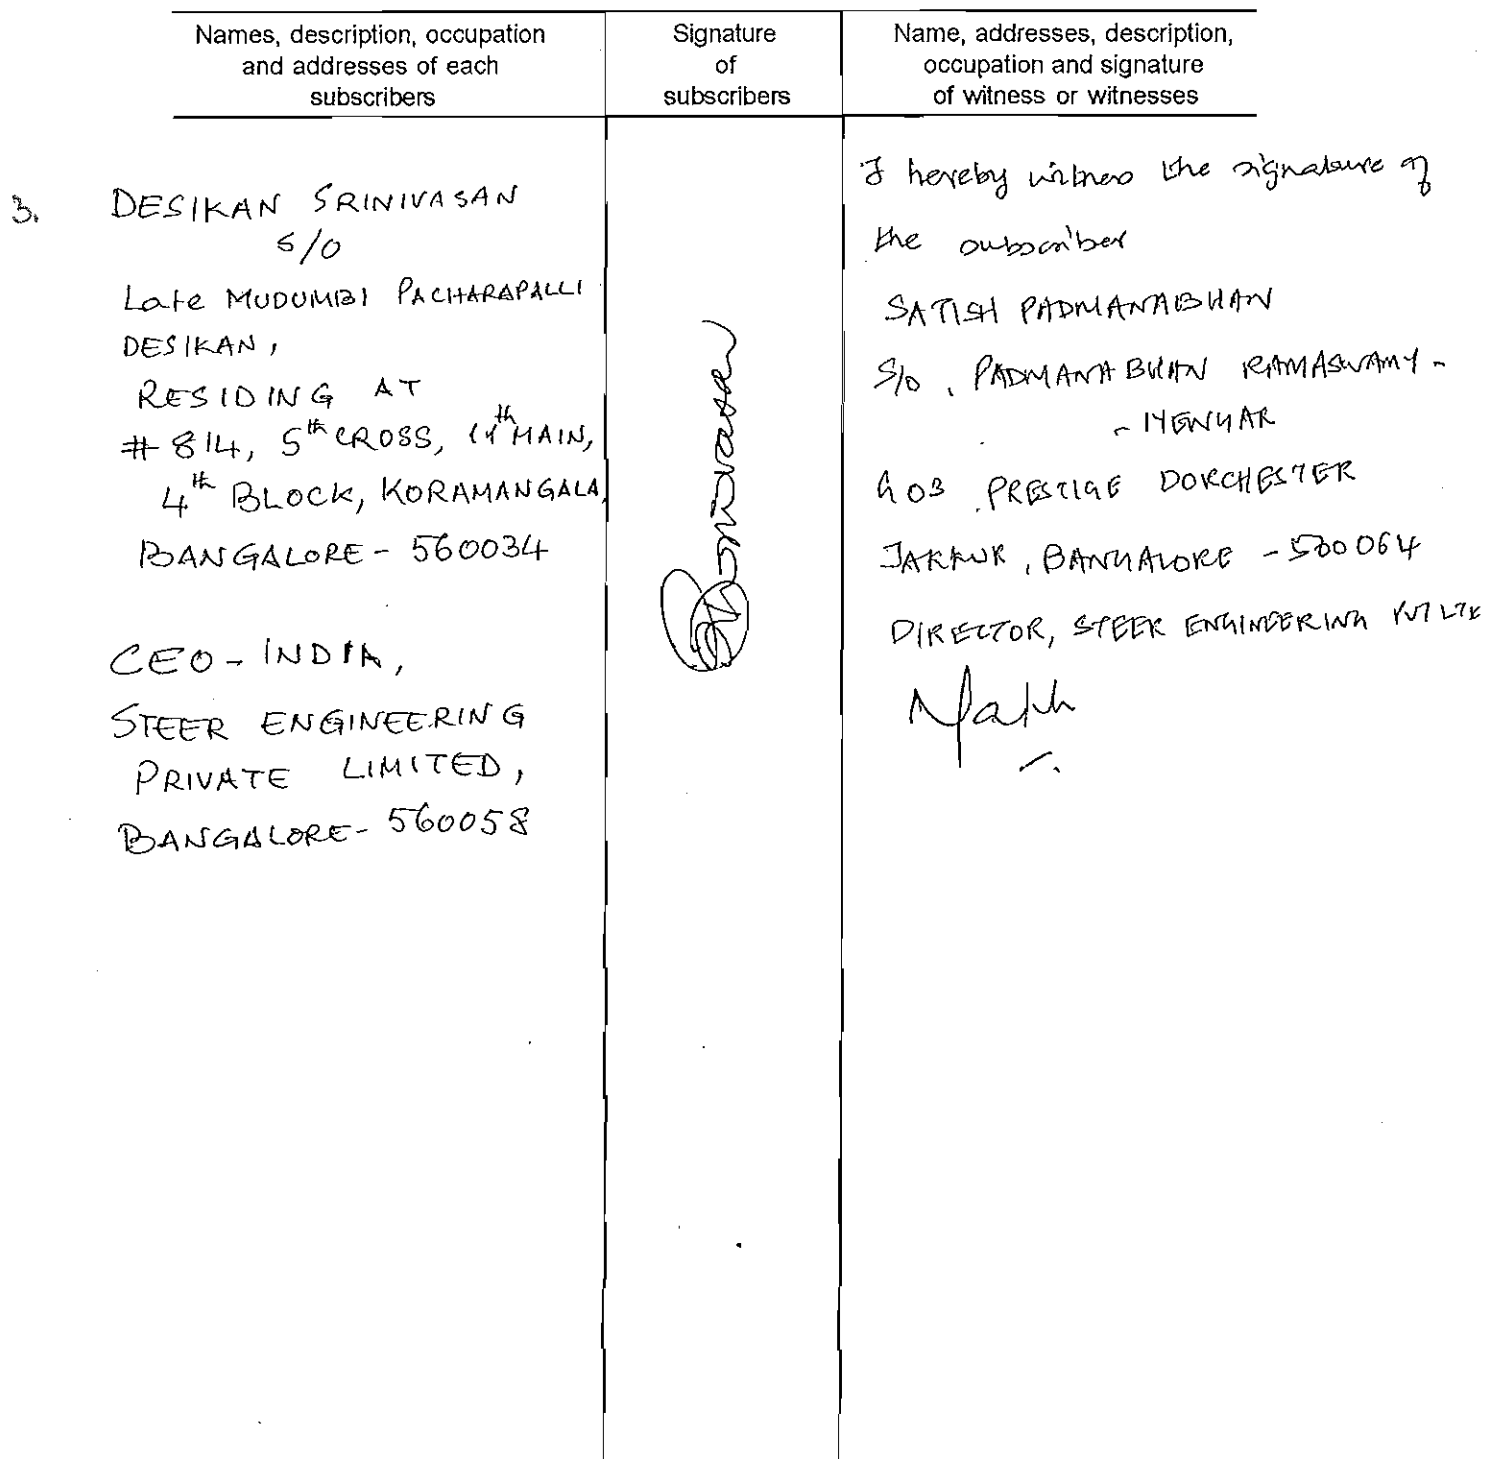 Names, description, occupation
and addresses of each
subscribers
Signature
of
subscribers
Name, addresses, description,
occupation and signature
of witness or witnesses
3. DESIKAN SRINIVASAN
S/O
Late MUDUMBI PACHARAPALLI
DESIKAN,
RESIDING AT
# 814, 5th CROSS, MAIN,
4th BLOCK, KORAMANGALA,
BANGALORE - 560034
CEO - INDIA,
STEER ENGINEERING
PRIVATE LIMITED,
BANGALORE - 560058
Srinivasan
I hereby witness the signature of
the subscriber
SATISH PADMANABHAN
S/o. PADMANABHAN RAMASWAMY -
- IYENGAR
PRESTIGE DORCHESTER
JAKKUR, BANGALORE - 560064
DIRECTOR, STEER ENGINEERING PVT LTD